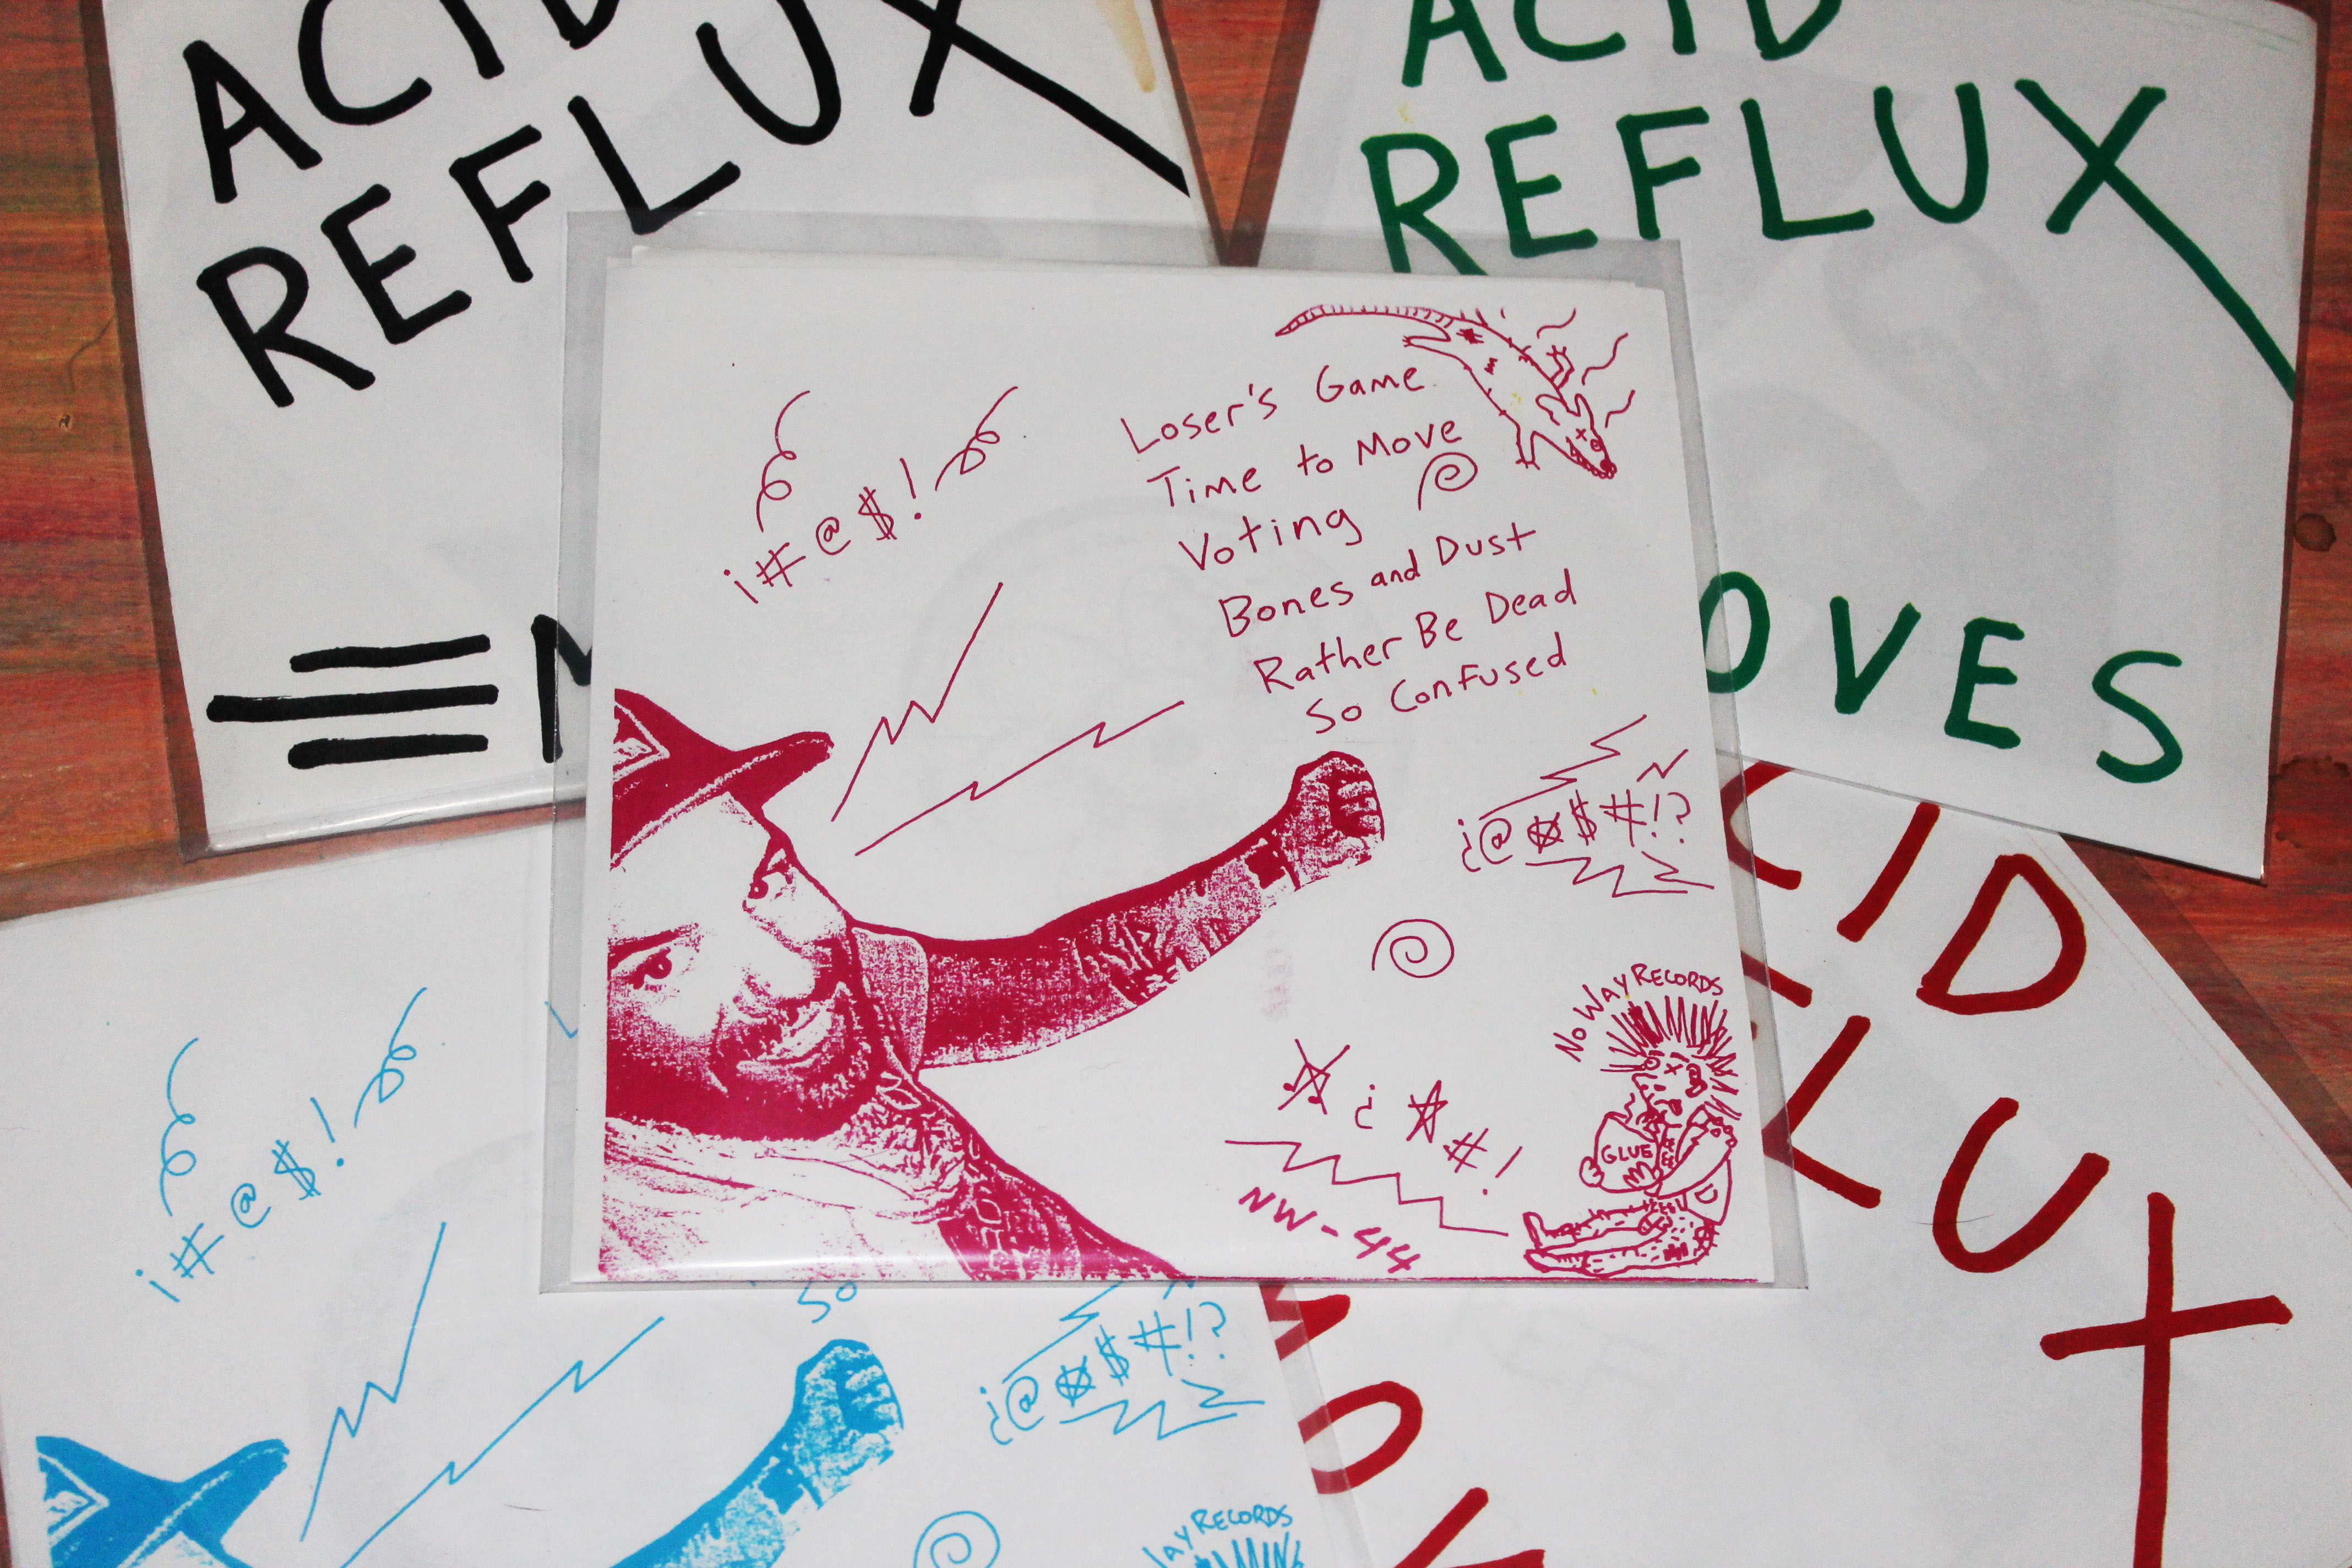 ACID
REFLUX
ACID
REFLUX
OVES
¡#@$!
Loser's Game
Time to Move
Voting
Bones and Dust
Rather Be Dead
So Confused
¿@$#!?
No Way Records
GLUE
¿#!
NW-44
CID
LUX
¡#@$!
So
¿@$#!?
WAY RECORDS